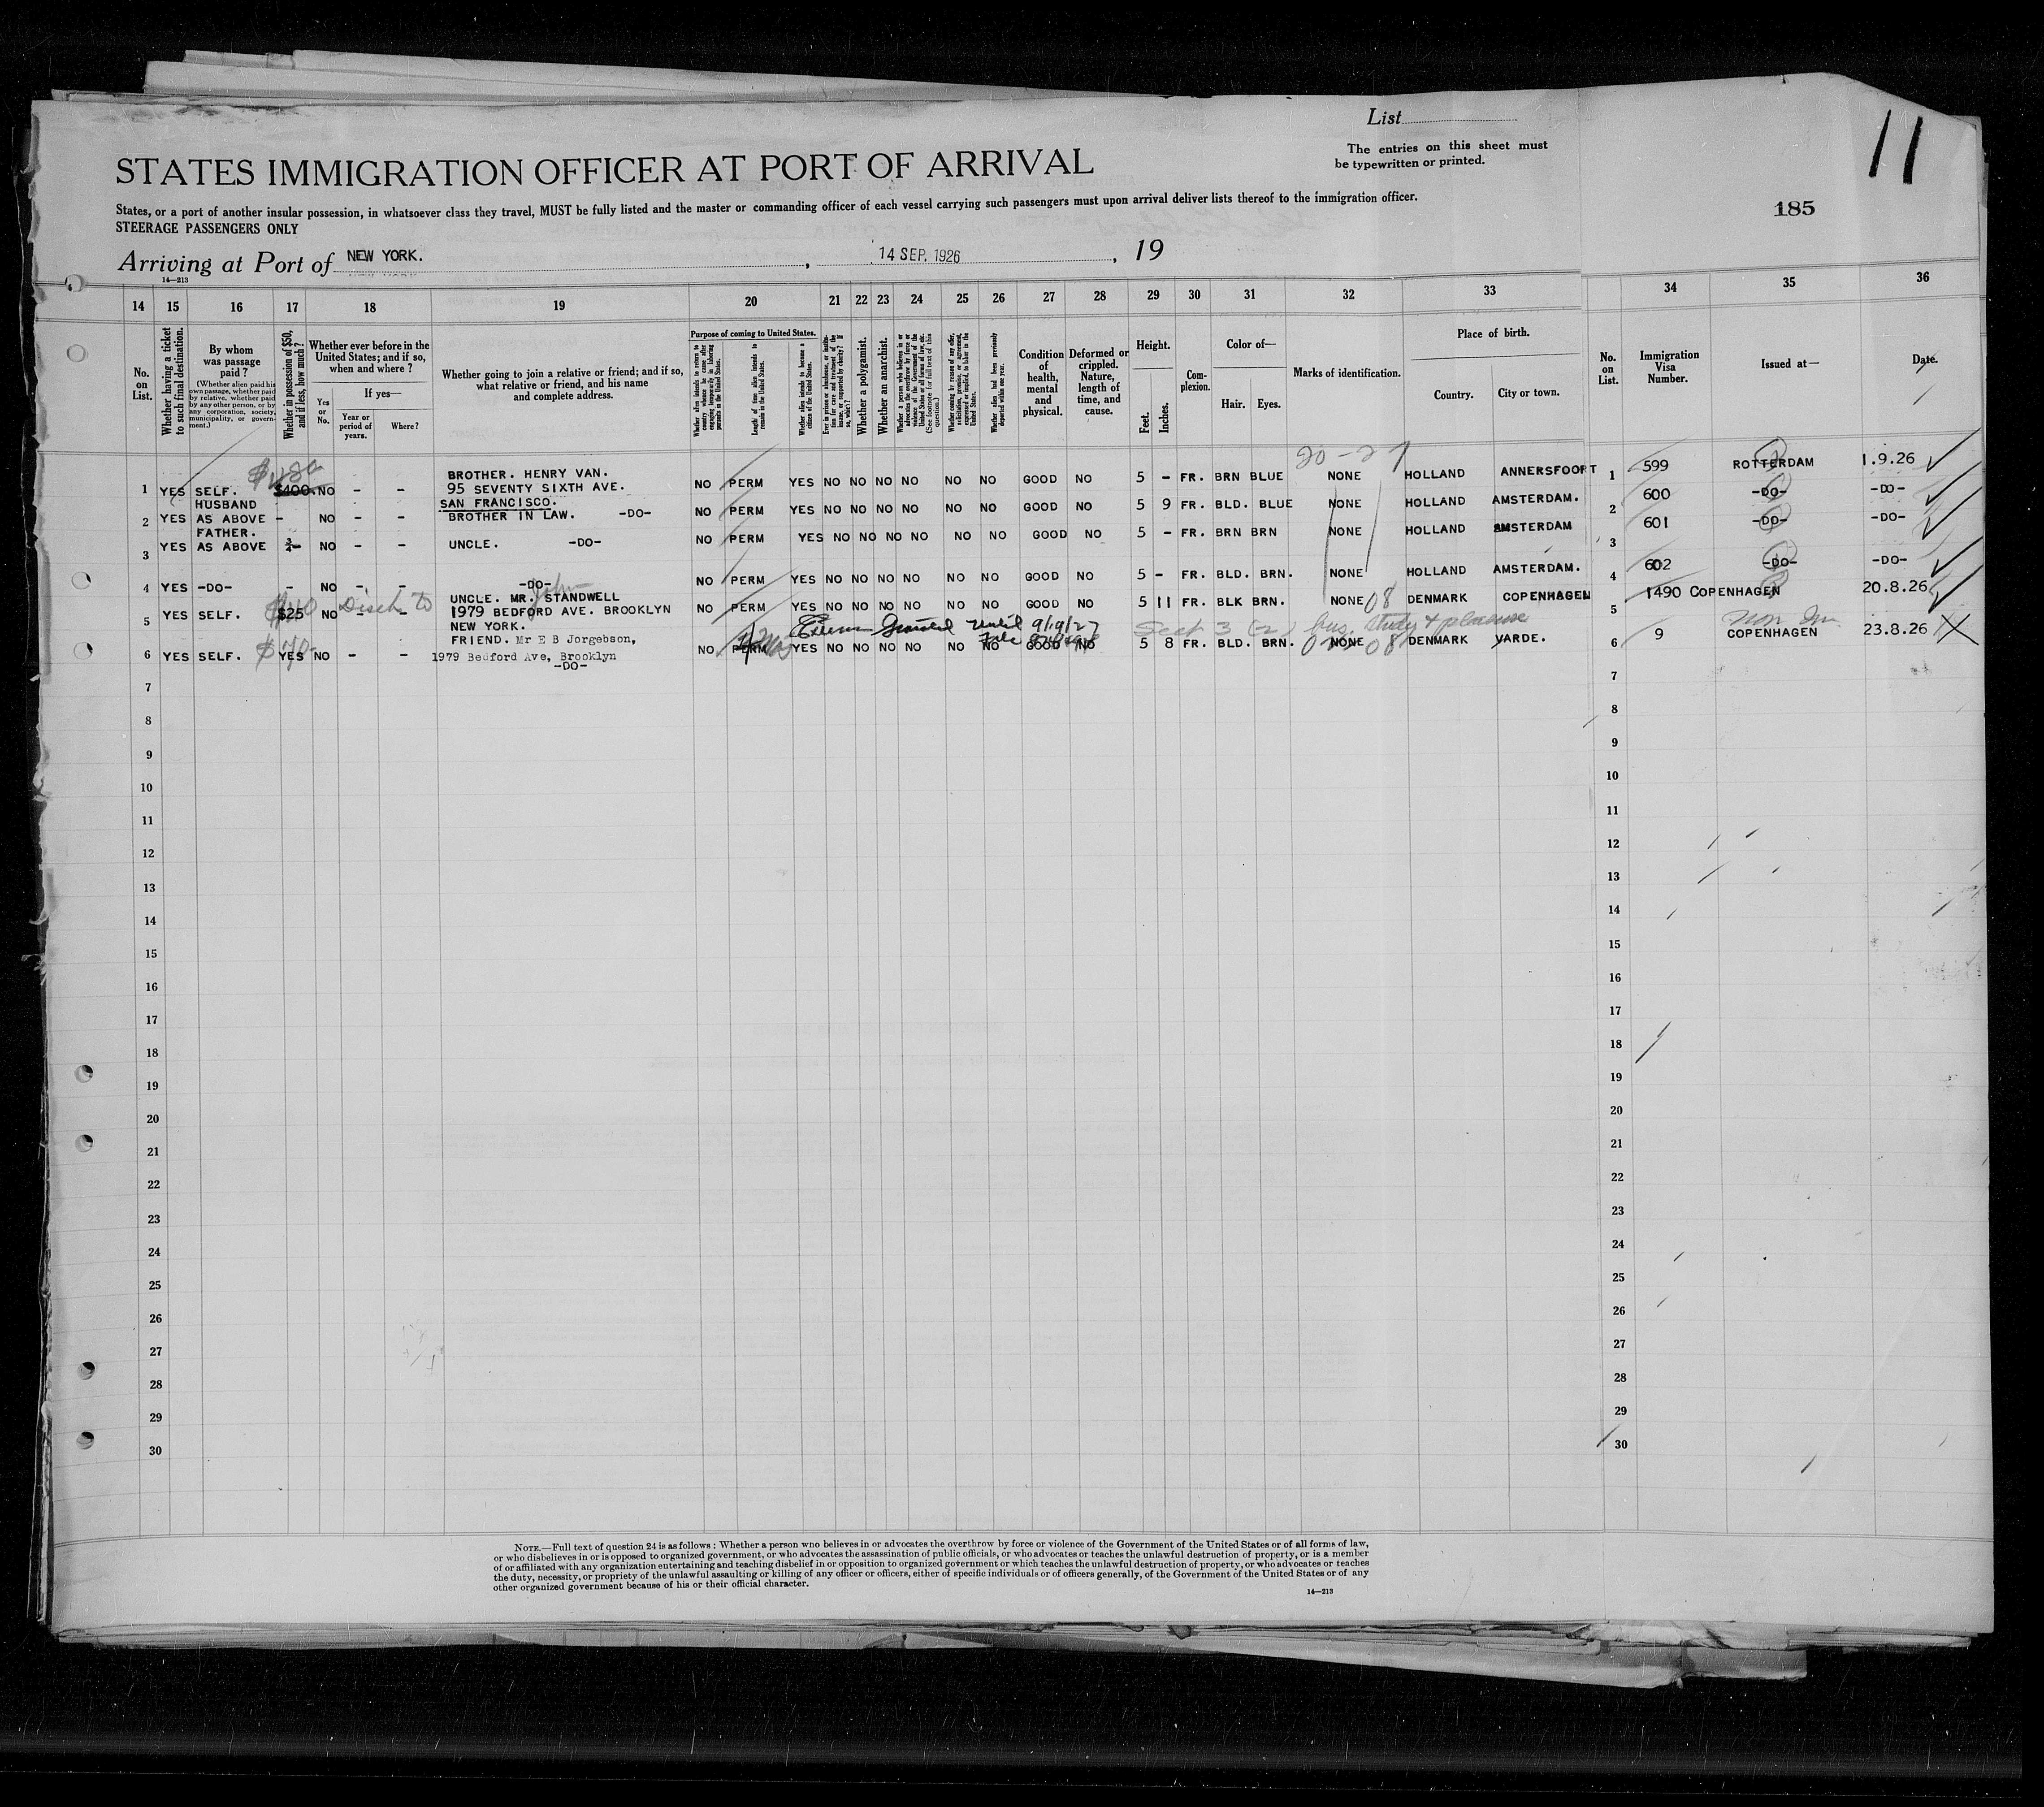 List
The entries on this sheet must
be typewritten or printed.
11
185
STATES IMMIGRATION OFFICER AT PORT OF ARRIVAL
States, or a port of another insular possession, in whatsoever class they travel, MUST be fully listed and the master or commanding officer of each vessel carrying such passengers must upon arrival deliver lists thereof to the immigration officer.
STEERAGE PASSENGERS ONLY
Arriving at Port of NEW YORK. , 14 SEP. 1926 , 19
14—213
14 15 16 17 18 19 20 21 22 23 24 25 26 27 28 29 30 31 32 33 34 35 36
No. on List.
Whether having a ticket to such final destination.
By whom was passage paid?
(Whether alien paid his own passage, whether paid by relative, whether paid by any other person, or by any corporation, society, municipality, or government.)
Whether in possession of $50, and if less, how much?
Whether ever before in the United States; and if so, when and where?
Yes or No.
If yes—
Year or period of years.
Where?
Whether going to join a relative or friend; and if so, what relative or friend, and his name and complete address.
Purpose of coming to United States.
Whether alien intends to return to country whence he came after engaging temporarily in laboring pursuits in the United States.
Length of time alien intends to remain in the United States.
Whether alien intends to become a citizen of the United States.
Ever in prison or almshouse, or institution for care and treatment of the insane, or supported by charity? If so, which?
Whether a polygamist.
Whether an anarchist.
Whether a person who believes in or advocates the overthrow by force or violence of the Government of the United States or all forms of law, etc. (See footnote for full text of this question.)
Whether coming by reason of any offer, solicitation, promise, or agreement, expressed or implied, to labor in the United States.
Whether alien had been previously deported within one year.
Condition of health, mental and physical.
Deformed or crippled. Nature, length of time, and cause.
Height.
Feet. Inches.
Complexion.
Color of—
Hair. Eyes.
Marks of identification.
Place of birth.
Country. City or town.
No. on List.
Immigration Visa Number.
Issued at—
Date.
20-27
1 YES SELF. $400. NO - - BROTHER. HENRY VAN. 95 SEVENTY SIXTH AVE. SAN FRANCISCO. NO PERM YES NO NO NO NO NO NO GOOD NO 5 - FR. BRN BLUE NONE HOLLAND ANNERSFOORT 1 599 ROTTERDAM 1.9.26
2 YES HUSBAND AS ABOVE - NO - - BROTHER IN LAW. -DO- NO PERM YES NO NO NO NO NO NO GOOD NO 5 9 FR. BLD. BLUE NONE HOLLAND AMSTERDAM. 2 600 -DO- -DO-
3 YES FATHER. AS ABOVE - NO - - UNCLE. -DO- NO PERM YES NO NO NO NO NO NO GOOD NO 5 - FR. BRN BRN NONE HOLLAND AMSTERDAM 3 601 -DO- -DO-
4 YES -DO- - NO - - -DO- NO PERM YES NO NO NO NO NO NO GOOD NO 5 - FR. BLD. BRN. NONE HOLLAND AMSTERDAM. 4 602 -DO- -DO-
5 YES SELF. $40 $25 NO Disch to - - UNCLE. MR. John STANDWELL 1979 BEDFORD AVE. BROOKLYN NEW YORK. NO PERM YES NO NO NO NO NO NO GOOD NO 5 11 FR. BLK BRN. NONE 08 DENMARK COPENHAGEN 5 1490 COPENHAGEN 20.8.26
Granted until 9/19/27
Sect 3 (2) bus. study & pleasure
6 YES SELF. $70- YES NO - - FRIEND. Mr E B Jorgebson, 1979 Bedford Ave, Brooklyn -DO- NO PERM YES NO NO NO NO NO NO GOOD NO 5 8 FR. BLD. BRN. NONE 08 DENMARK VARDE. 6 9 COPENHAGEN 23.8.26
7 7
8 8
9 9
10 10
11 11
12 12
13 13
14 14
15 15
16 16
17 17
18 18
19 19
20 20
21 21
22 22
23 23
24 24
25 25
26 26
27 27
28 28
29 29
30 30
NOTE.—Full text of question 24 is as follows: Whether a person who believes in or advocates the overthrow by force or violence of the Government of the United States or of all forms of law,
or who disbelieves in or is opposed to organized government, or who advocates the assassination of public officials, or who advocates or teaches the unlawful destruction of property, or is a member
of or affiliated with any organization entertaining and teaching disbelief in or opposition to organized government or which teaches the unlawful destruction of property, or who advocates or teaches
the duty, necessity, or propriety of the unlawful assaulting or killing of any officer or officers, either of specific individuals or of officers generally, of the Government of the United States or of any
other organized government because of his or their official character.
14—213